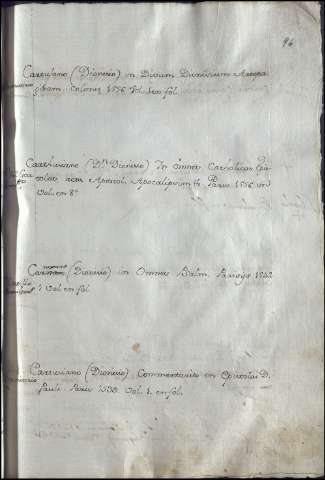 96
Cartusano (Dionisio) in Divum Dionisium Areopa
gitam. Colonie 1556 Vol. 1 en fol.
Carthusiano (D.n Dionisio) In omnes Catholicas Epis
tolas, acta Apostol. Apocalipsim & Paris 1556 un
Vol. en 8º
(Dionisio) in Omnes Psalm. 1542
1 Vol en fol.
Cartusiano (Dionisio) Commentarius in Epistolas D.
Pauli Paris 1538. Vol. 1. en fol.